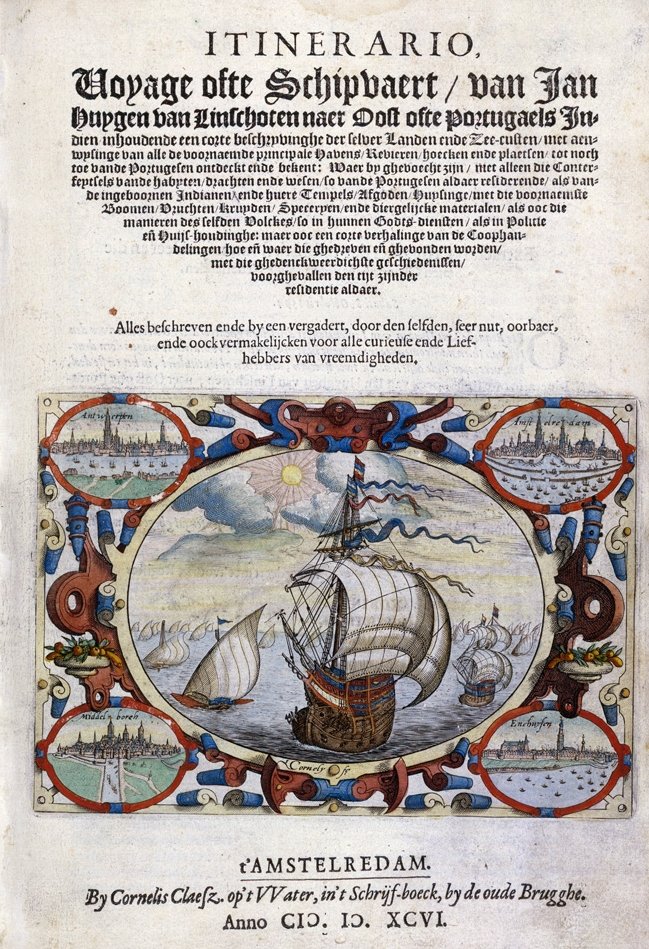 ITINERARIO,
Voyage ofte Schipvaert / van Jan
Huygen van Linschoten naer Oost ofte Portugaels In-
dien inhoudende een corte beschryvinghe der selver Landen ende Zee-custen / met aen-
wysinge van alle de voornaemde principale Havens / Revieren / hoecken ende plaetsen / tot noch
toe vande Portugesen ontdeckt ende bekent: Waer by ghevoecht zijn / niet alleen die Conter-
feytsels vande habyten / drachten ende wesen / so vande Portugesen aldaer residerende / als van-
de ingeboornen Indianen / ende huere Tempels / Afgoden / Huysinge / met die voornaemste
Boomen / Vruchten / Kruyden / Speceryen / ende diergelijcke materialen / als ooc die
manieren des selfden Volckes / so in hunnen Godts-diensten / als in Politie
eñ Huijs-houdinghe: maer ooc een corte verhalinge van de Coophan-
delingen / hoe eñ waer die ghedreven eñ ghevonden worden /
met die ghedenckweerdichste geschiedenissen /
voorghevallen den tijt zijnder
residentie aldaer.
Alles beschreven ende by een vergadert, door den selfden, seer nut, oorbaer,
ende oock vermakelijcken voor alle curieuse ende Lief-
hebbers van vreemdigheden.
Antwerpen
Amstelredam
Middelboren
Enchuysen
t'AMSTELREDAM.
By Cornelis Claesz. op't VVater, in't Schrijf-boeck, by de oude Brugghe.
Anno CIↃ. IↃ. XCVI.